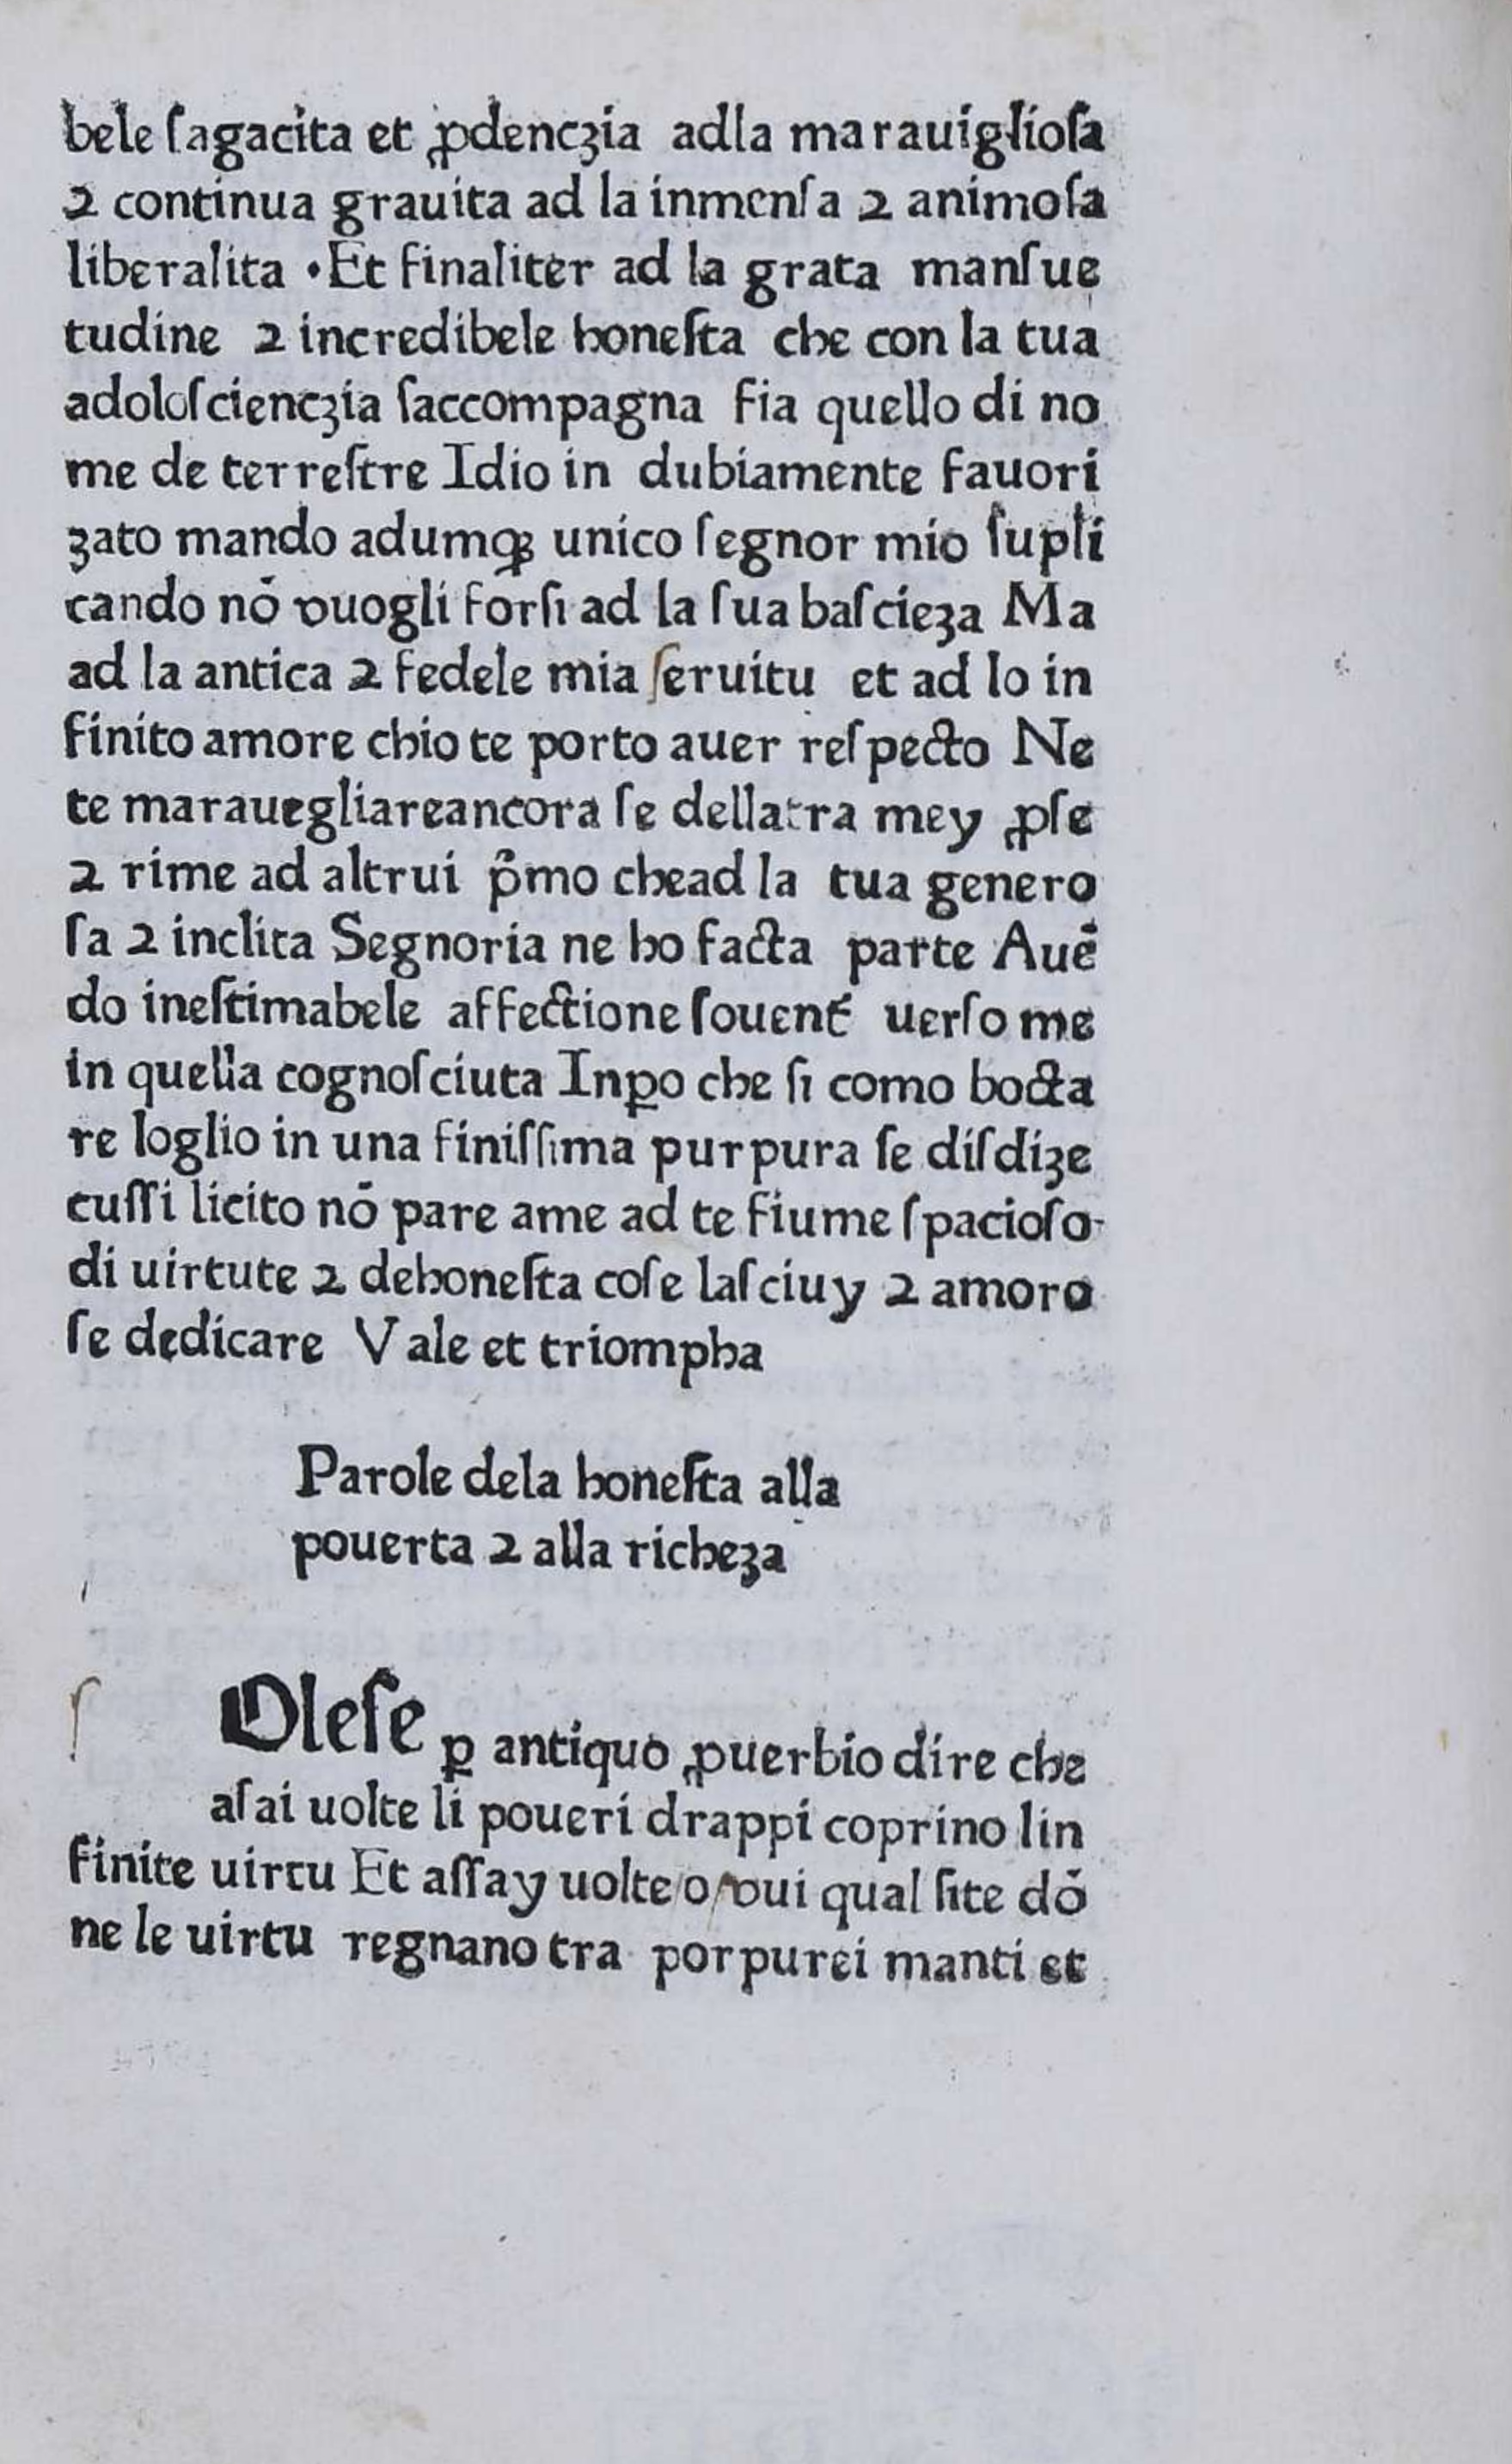 bele ſagacita et ꝓdenczia adla marauiglioſa
⁊ continua grauita ad la inmenſa ⁊ animoſa
liberalita ·Et finaliter ad la grata manſue
tudine ⁊ incredibele honeſta che con la tua
adoloſcienczia ſaccompagna fia quello di no
me de terreſtre Idio in dubiamente fauori
zato mando adumqꝫ unico ſegnor mio ſupli
cando nō vuogli forſi ad la ſua baſcieza Ma
ad la antica ⁊ fedele mia ſeruitu et ad lo in
finito amore chio te porto auer reſpecto Ne
te marauegliareancora ſe dellatra mey ꝓſe
⁊ rime ad altrui p̄mo chead la tua genero
ſa ⁊ inclita Segnoria ne ho facta parte Auē
do ineſtimabele affectione ſouent̄ uerſo me
in quella cognoſciuta Inꝑo che ſi como bocta
re loglio in una finiſſima purpura ſe diſdize
cuſſi licito nō pare ame ad te fiume ſpacioſo
di uirtute ⁊ dehoneſta coſe laſciuy ⁊ amoro
ſe dedicare Vale et triompha
Parole dela honeſta alla
pouerta ⁊ alla richeza
ſ Oleſe ꝑ antiquo ꝓuerbio dire che
aſai uolte li poueri drappi coprino lin
finite uirtu Et aſſay uolte o vui qual ſite dō
ne le uirtu regnano tra porpurei manti et